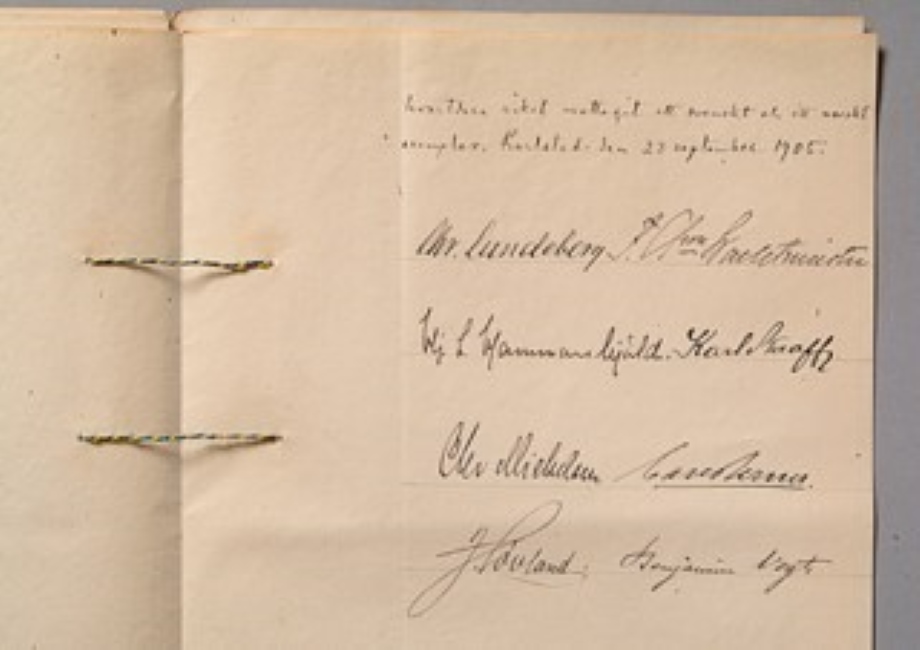 hvartdera riket mottagit ett svenskt och ett norskt
exemplar. Karlstad den 23 september 1905.
Chr. Lundeberg F. Thn Wachtmeister
Hj L Hammarskjöld. Karl Staaff
Chr Michelsen Carl Berner.
J Løvland. Benjamin Vogt